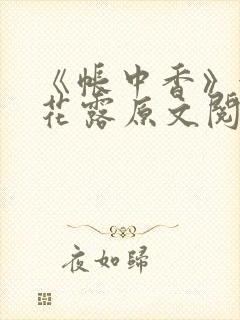 《帐中香》
花露原文阅
夜如歸